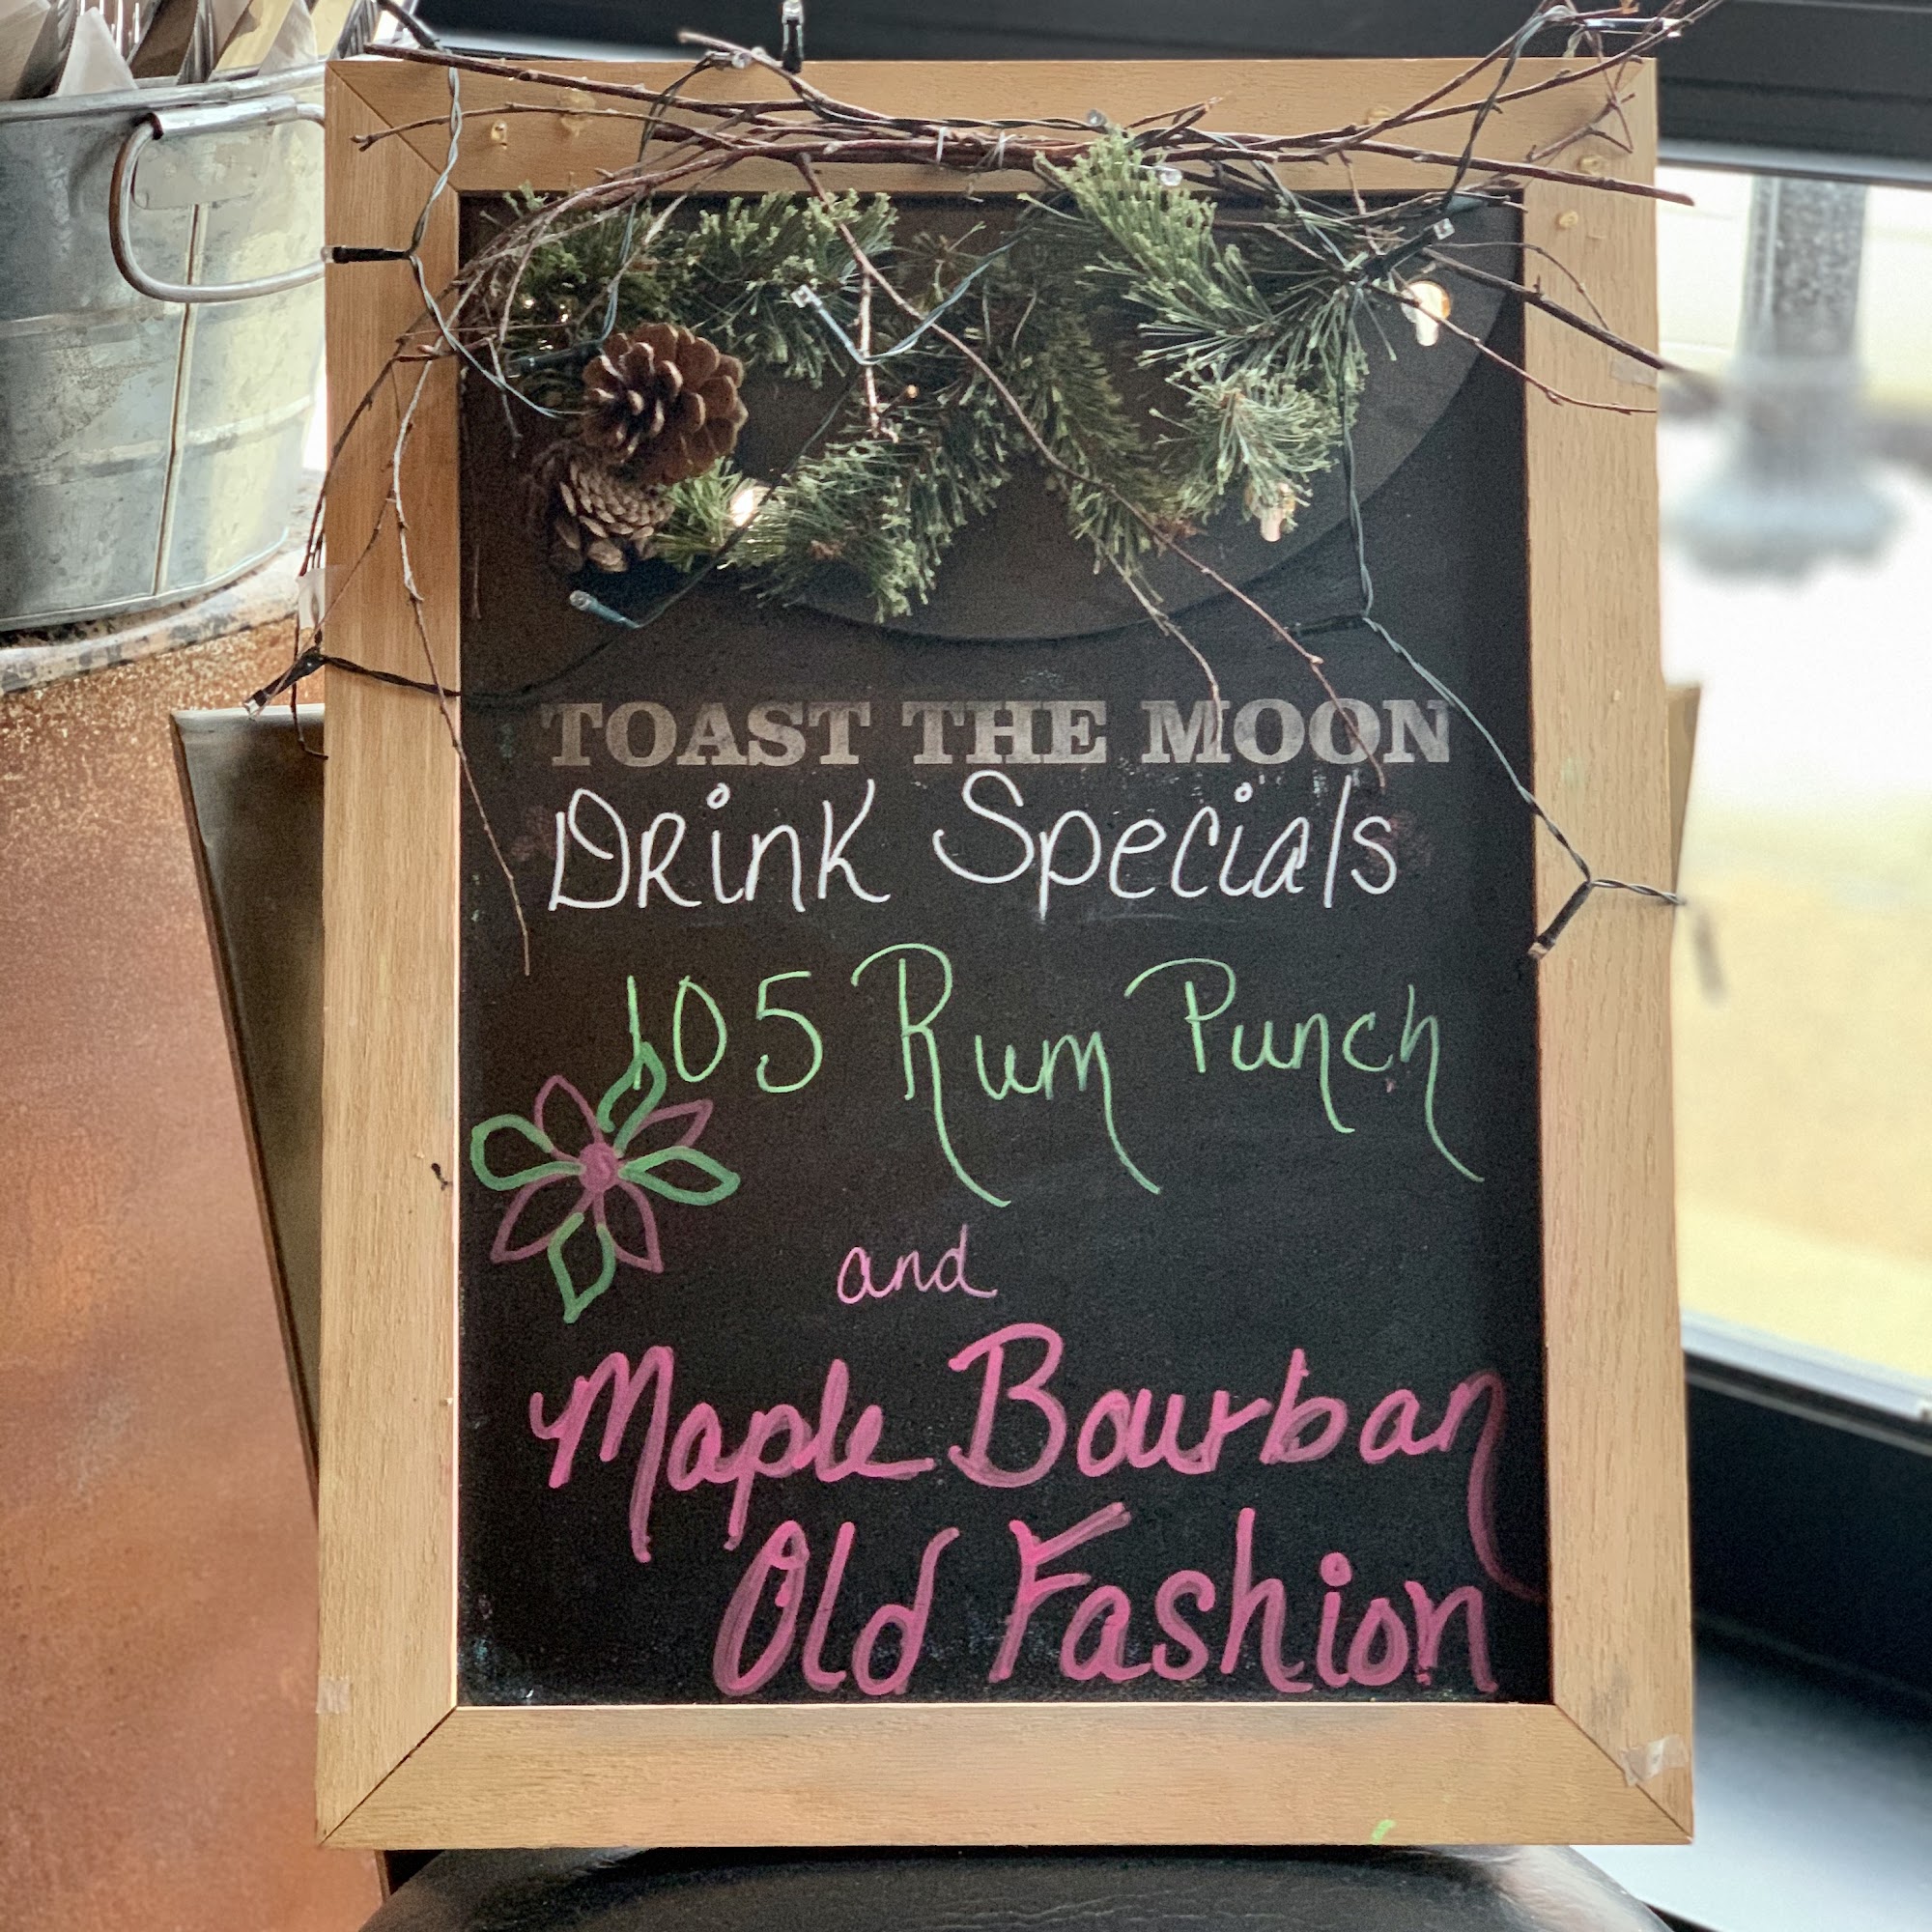 TOAST THE MOON
Drink Specials
105 Rum Punch
and
Maple Bourban
Old Fashion